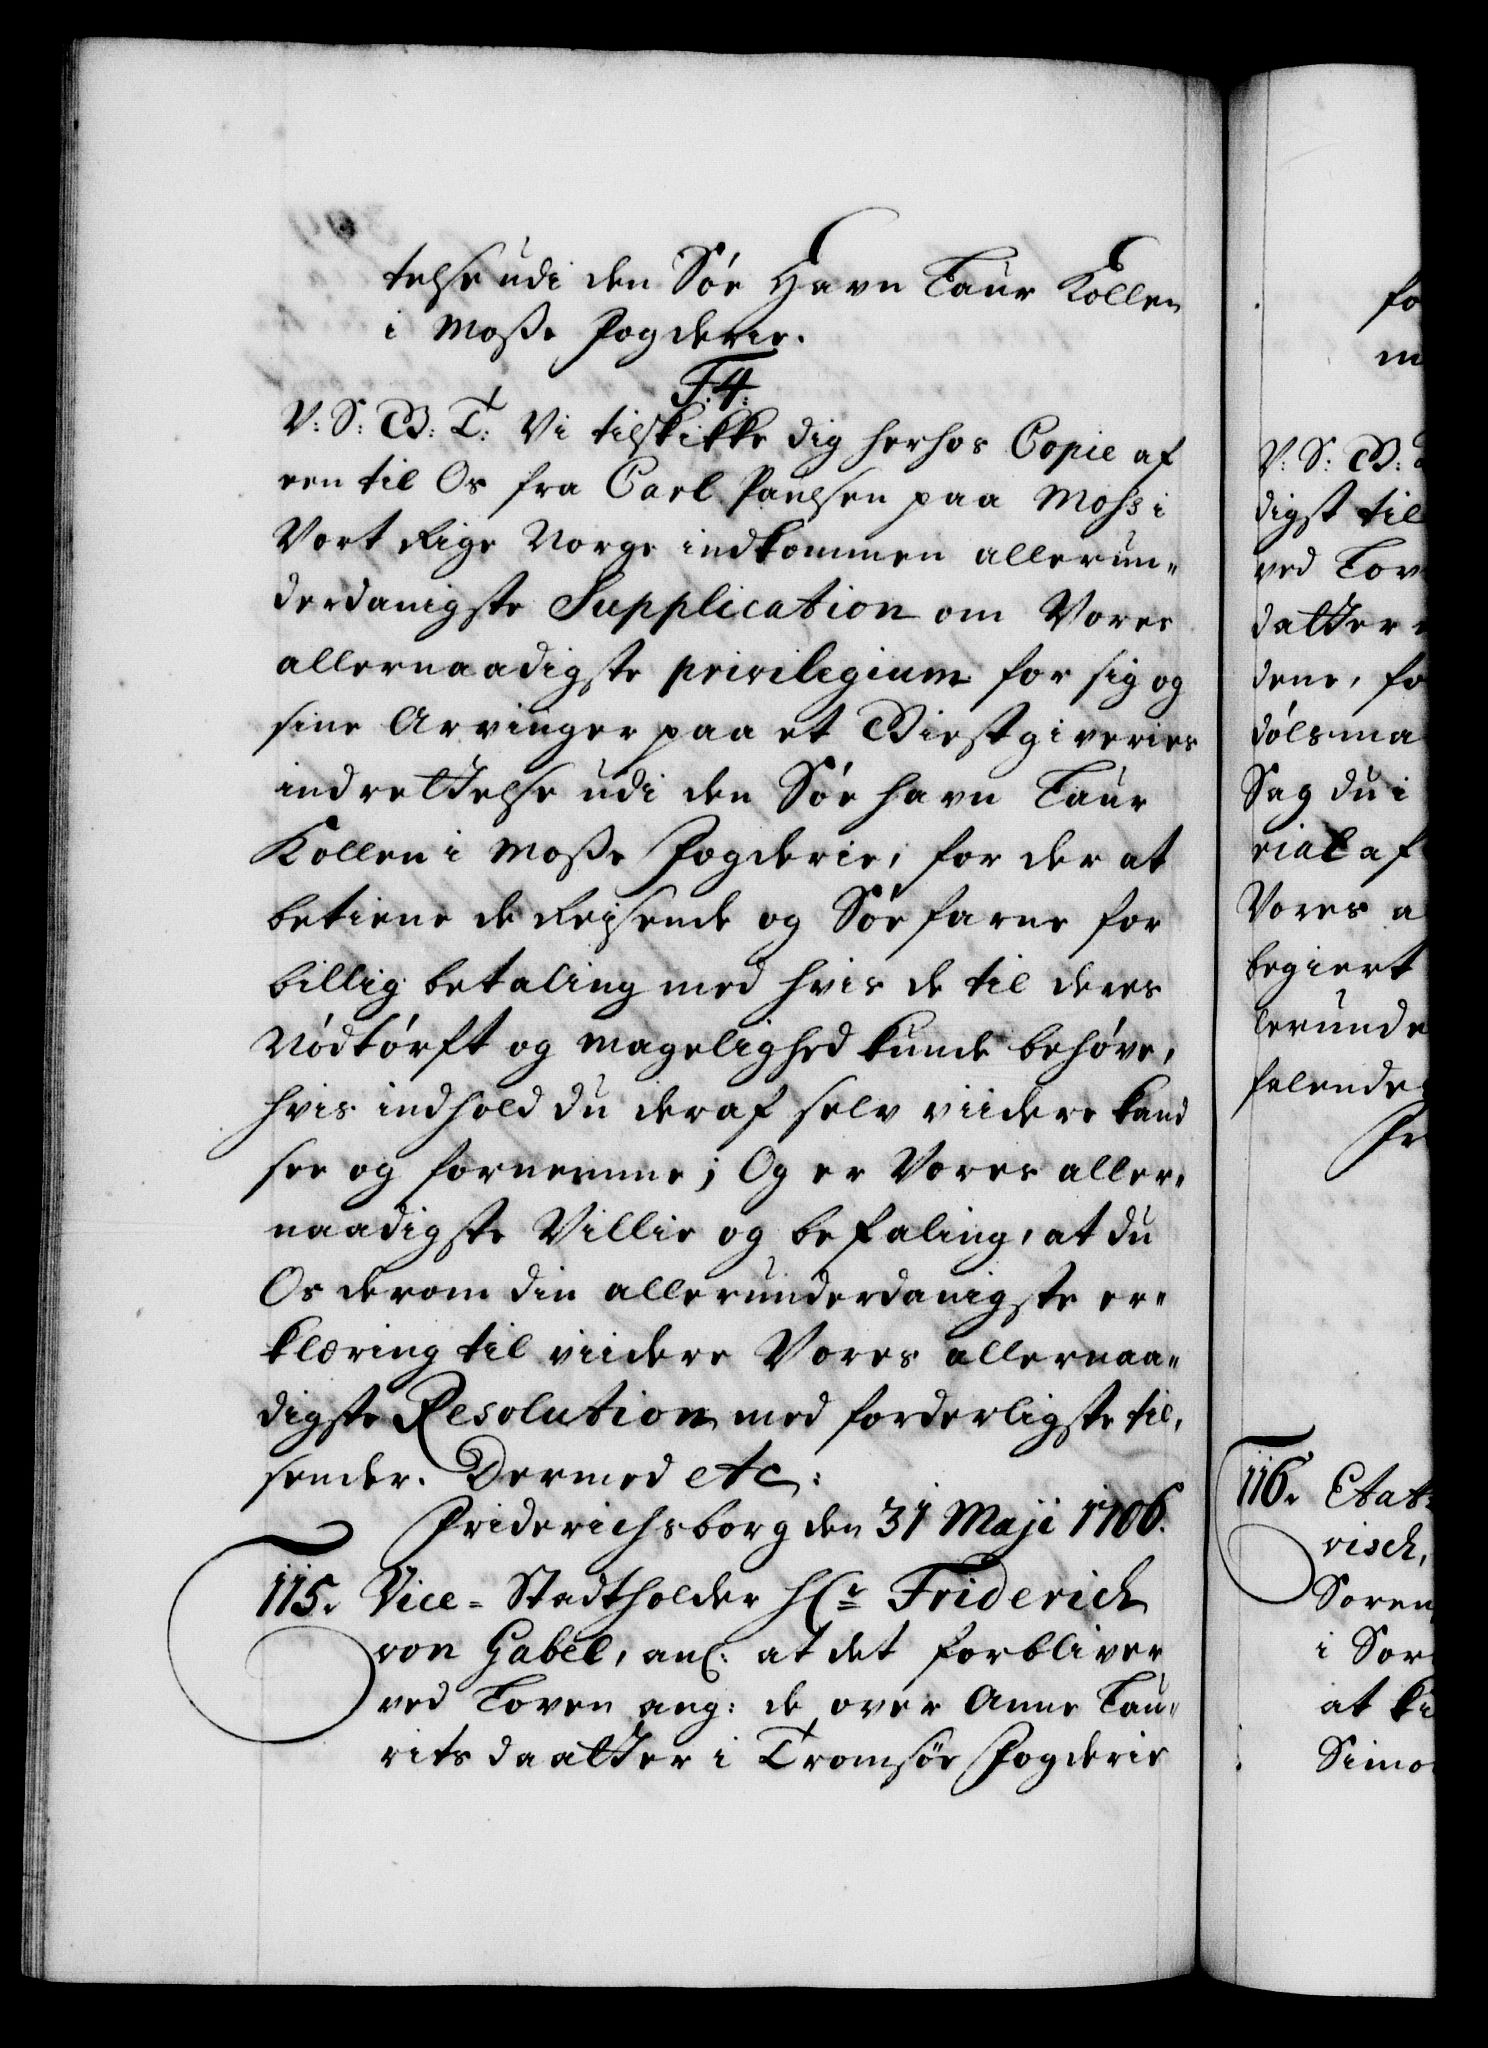 telse udi den Söe Havn Laur Kollen
i Mosse Fogderie.
F. 4:
V: S: G: T: Vi tilskikke dig herhos Copie af
een til Os fra Carl Paulsen paa Mohs i
Vort Rige Norge indkommen allerun„
derdanigste Supplication om Vores
allernaadigste privilegium for sig og
sine Arvinger paa et Giestgiveries
indrettelse udi den Söe havn Laur
Kollen i Mosse Fogderie, for der at
betiene de Reisende og Söefarne for
billig betaling med hvis de til deres
Nödtörft og magelighed kunde behöve,
hvis indhold du deraf selv viidere kand
see og fornemme; Og er Vores aller„
naadigste Villie og befaling, at du
Os derom din allerunderdanigste er„
klæring til viidere Vores allernaa„
digste Resolution med forderligste til„
sender. Dermed etc:
Friderichsborg den 31 Maji 1706.
115. Vice-Stadtholder Hr Friderich
von Gabel, anl: at det forbliver
ved Loven ang: de over Anne Lau„
rits daatter i Tromsöe Fogderie
fo
m
V: S: G:
digst til
ved Lov
datter
dene, fo
dölsma
Sag du i
rial af
Vores a
begiert
lerunde
felende
Fr
116. Etats
risch,
Soren
i Sor
at ki
Simo